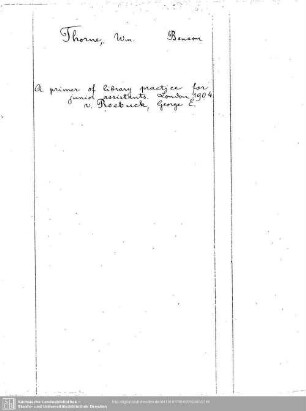 Thorne, Wm. Benson
A primer of library practice for
junior assistants. London, 1904.
v. Roebuck, George E.
Sächsische Landesbibliothek -
Staats- und Universitätsbibliothek Dresden